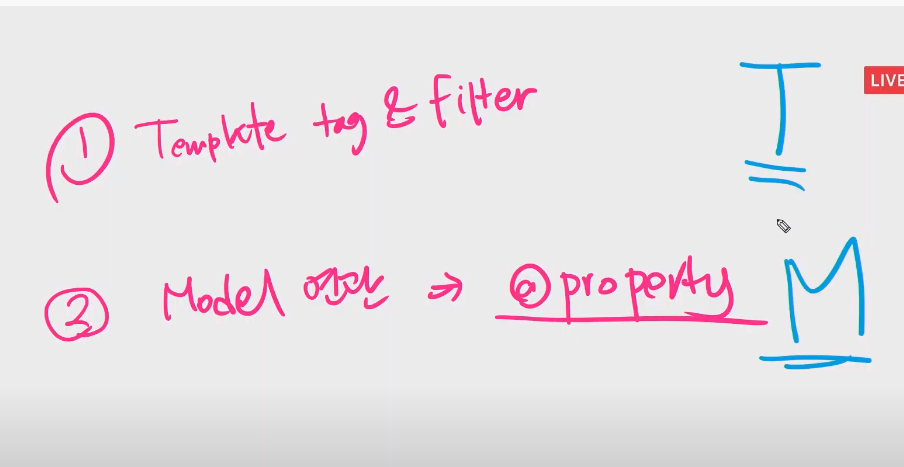 ① Template tag & Filter
T
LIVE
② Model → @property
M